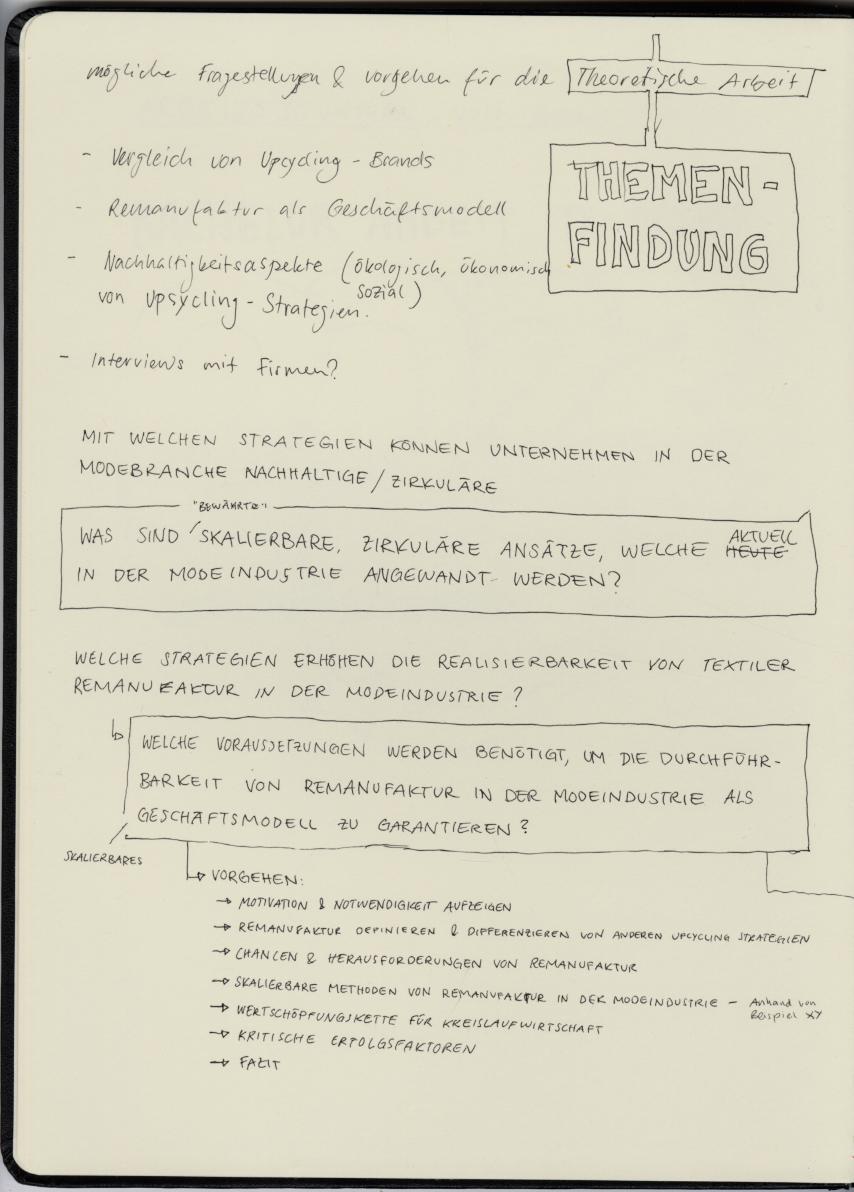 mögliche Fragestellungen & vorgehen für die Theoretische Arbeit
THEMEN-
FINDUNG
- Vergleich von Upcycling - Brands
- Remanufaktur als Geschäftsmodell
- Nachhaltigkeitsaspekte (ökologisch, ökonomisch
sozial)
von Upsycling - Strategien.
- Interviews mit Firmen?
MIT WELCHEN STRATEGIEN KÖNNEN UNTERNEHMEN IN DER
MODEBRANCHE NACHHALTIGE / ZIRKULÄRE
"BEWÄHRTE"
WAS SIND SKALIERBARE, ZIRKULÄRE ANSÄTZE, WELCHE HEUTE AKTUELL
IN DER MODEINDUSTRIE ANGEWANDT WERDEN?
WELCHE STRATEGIEN ERHÖHEN DIE REALISIERBARKEIT VON TEXTILER
REMANUFAKTUR IN DER MODEINDUSTRIE?
WELCHE VORAUSSETZUNGEN WERDEN BENÖTIGT, UM DIE DURCHFÜHR-
BARKEIT VON REMANUFAKTUR IN DER MODEINDUSTRIE ALS
GESCHÄFTSMODELL ZU GARANTIEREN?
SKALIERBARES
→ VORGEHEN:
→ MOTIVATION & NOTWENDIGKEIT AUFZEIGEN
→ REMANUFAKTUR DEFINIEREN & DIFFERENZIEREN VON ANDEREN UPCYCLING STRATEGIEN
→ CHANCEN & HERAUSFORDERUNGEN VON REMANUFAKTUR
→ SKALIERBARE METHODEN VON REMANUFAKTUR IN DER MODEINDUSTRIE - Anhand von
Beispiel XY
→ WERTSCHÖPFUNGSKETTE FÜR KREISLAUFWIRTSCHAFT
→ KRITISCHE ERFOLGSFAKTOREN
→ FAZIT